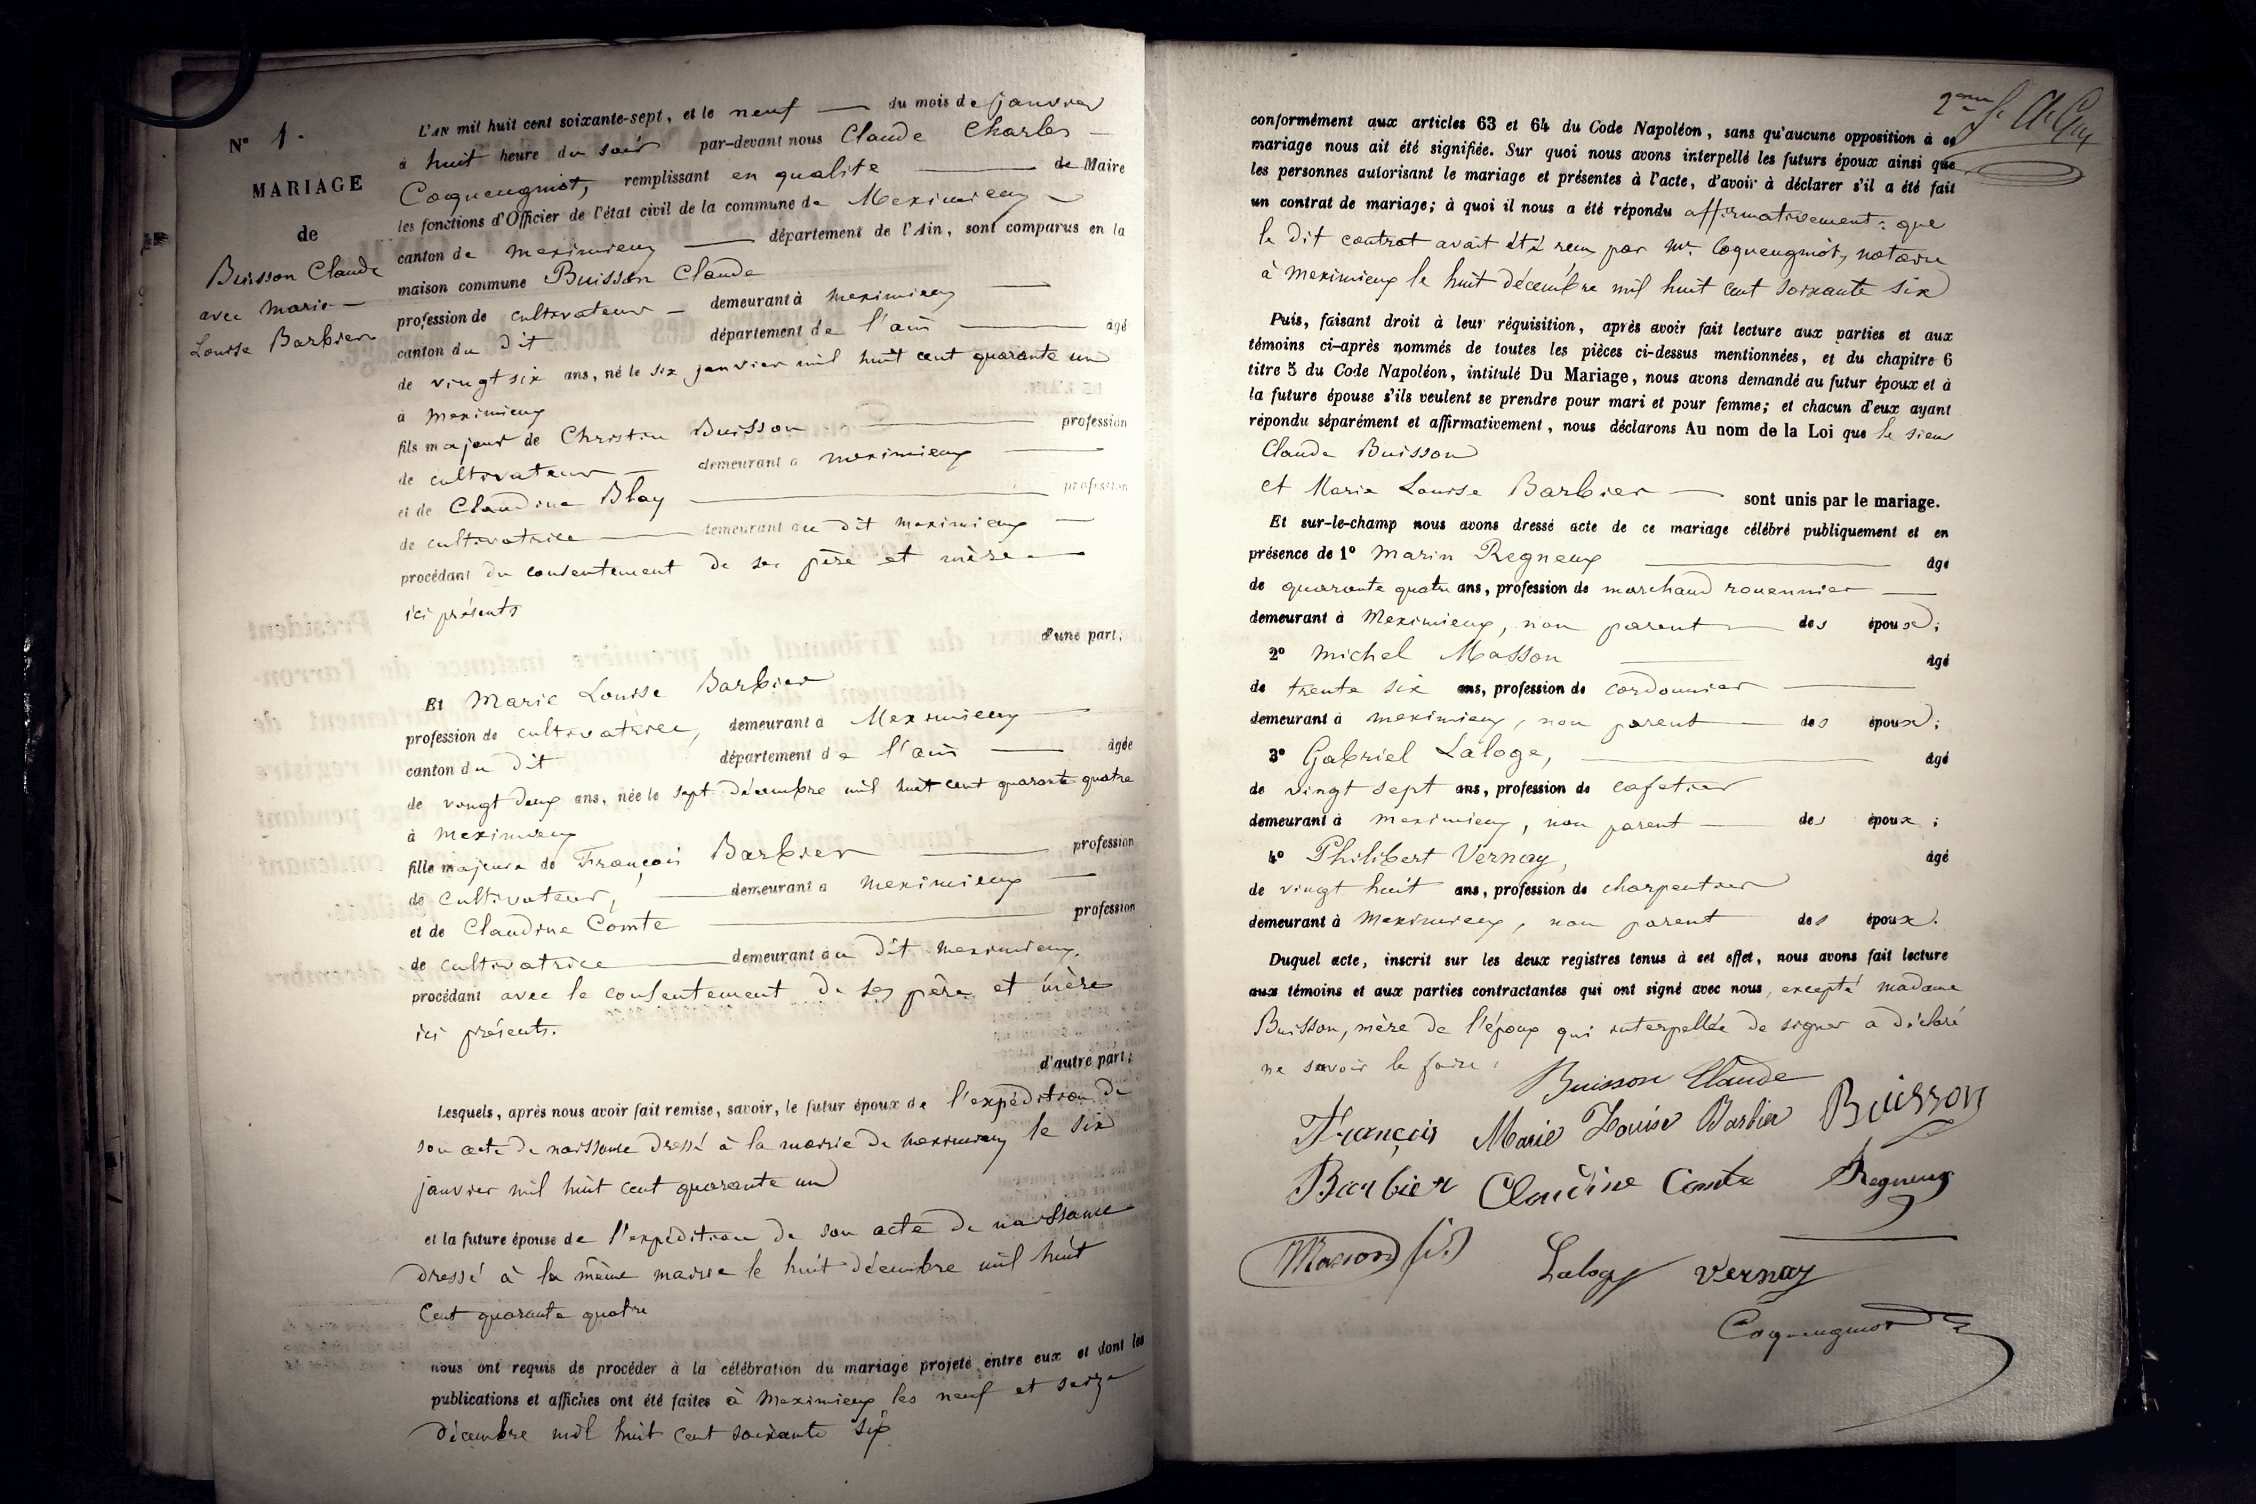 N° 1.
MARIAGE
de
Buisson Claude
avec Marie
Louise Barbier
L'AN mil huit cent soixante-sept, et le neuf du mois de janvier
à huit heure du soir par-devant nous Claude Charles
Coqueugniot, remplissant en qualité de Maire
les fonctions d'Officier de l'état civil de la commune de Meximieux
canton de Meximieux département de l'Ain, sont comparus en la
maison commune Buisson Claude
profession de cultivateur demeurant à Meximieux
canton du dit département de l'ain âgé
de vingt six ans, né le six janvier mil huit cent quarante un
à Meximieux
fils majeur de Christin Buisson profession
de cultivateur demeurant à Meximieux
et de Claudine Blay profession
de cultivatrice demeurant au dit Meximieux
procédant du consentement de ses père et mère
ici présents
d'une part,
Et Marie Louise Barbier
profession de cultivatrice, demeurant à Meximieux
canton du dit département de l'ain âgée
de vingt deux ans, née le sept décembre mil huit cent quarante quatre
à Meximieux
fille majeure de François Barbier profession
de cultivateur, demeurant à Meximieux
et de Claudine Comte profession
de cultivatrice demeurant au dit Meximieux.
procédant avec le consentement de ses père et mère
ici présents.
d'autre part;
Lesquels, après nous avoir fait remise, savoir, le futur époux de l'expédition de
son acte de naissance dressé à la mairie de Meximieux le six
janvier mil huit cent quarante un
et la future épouse de l'expédition de son acte de naissance
dressé à la même mairie le huit décembre mil huit
cent quarante quatre
nous ont requis de procéder à la célébration du mariage projeté entre eux et dont les
publications et affiches ont été faites à Meximieux les neuf et seize
décembre mil huit cent soixante six
conformément aux articles 63 et 64 du Code Napoléon, sans qu'aucune opposition à ce
mariage nous ait été signifiée. Sur quoi nous avons interpellé les futurs époux ainsi que
les personnes autorisant le mariage et présentes à l'acte, d'avoir à déclarer s'il a été fait
un contrat de mariage; à quoi il nous a été répondu affirmativement: que
le dit contrat avait été reçu par Mr. Coqueugniot, notaire
à Meximieux le huit décembre mil huit cent soixante six
Puis, faisant droit à leur réquisition, après avoir fait lecture aux parties et aux
témoins ci-après nommés de toutes les pièces ci-dessus mentionnées, et du chapitre 6
titre 5 du Code Napoléon, intitulé Du Mariage, nous avons demandé au futur époux et à
la future épouse s'ils veulent se prendre pour mari et pour femme; et chacun d'eux ayant
répondu séparément et affirmativement, nous déclarons Au nom de la Loi que le sieur
Claude Buisson
et Marie Louise Barbier sont unis par le mariage.
Et sur-le-champ nous avons dressé acte de ce mariage célébré publiquement et en
présence de 1° Marin Regneux âgé
de quarante quatre ans, profession de marchand rouennier
demeurant à Meximieux, non parent des époux;
2° Michel Masson âgé
de trente six ans, profession de cordonnier
demeurant à Meximieux, non parent des époux;
3° Gabriel Laloge, âgé
de vingt sept ans, profession de cafetier
demeurant à Meximieux, non parent des époux;
4° Philibert Vernay, âgé
de vingt huit ans, profession de charpentier
demeurant à Meximieux, non parent des époux.
Duquel acte, inscrit sur les deux registres tenus à cet effet, nous avons fait lecture
aux témoins et aux parties contractantes qui ont signé avec nous, excepté madame
Buisson, mère de l'époux qui interpellée de signer a déclaré
ne savoir le faire.
Buisson Claude
François Marie Louise Barbier Buisson
Barbier Claudine Comte Regneux
Masson
Laloge Vernay
Coqueugniot